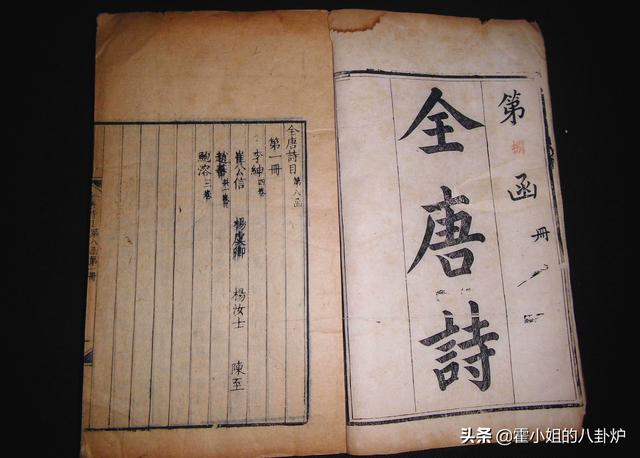 第 函 冊
全唐詩
全唐詩目 第八函
第一冊
李紳 四卷
崔公信 楊虞卿 楊汝士 陳至
鮑溶 三卷
第八函第一冊
头条 @霍小姐的八卦炉